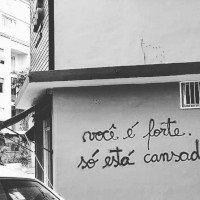 você é forte.
só está cansad